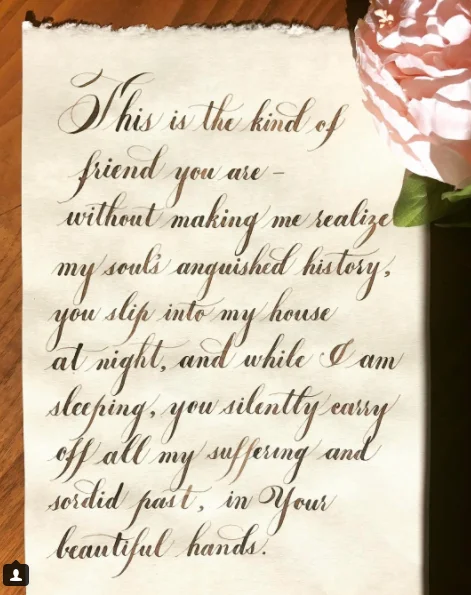 This is the kind of
friend you are -
without making me realize
my soul's anguished history,
you slip into my house
at night, and while I am
sleeping, you silently carry
off all my suffering and
sordid past, in Your
beautiful hands.